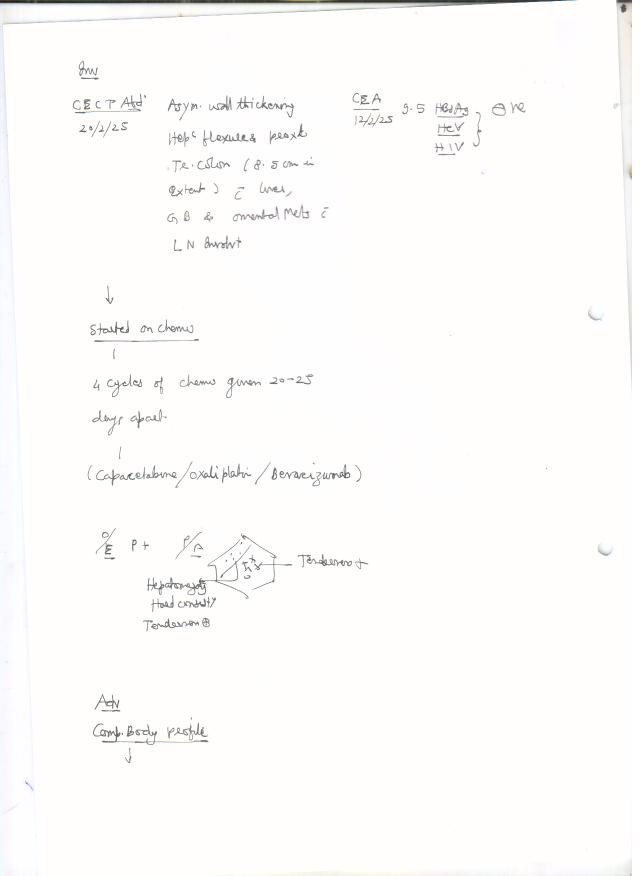 Inv
CECT Abd
20/2/25
Asym. wall thickening
Hepc flexure & proxt
Tr. Colon (8.5 cm in
Extent) c̄ liver,
GB & omental Mets c̄
LN Involvt
CEA 9.5
12/2/25
HBsAg
HCV
HIV
⊖ve
↓
Started on chemo
4 cycles of chemo given 20-25
days apart
(Capacetabine/oxaliplatin/Bevacizumab)
O/E P+ P/A
Tenderness +
Hepatomegaly
Hard consisty
Tenderness ⊕
Adv
Comp. Body profile
↓